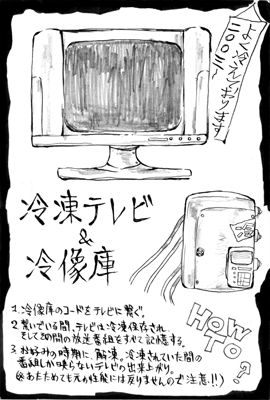 よく冷えております
二〇〇三〜
冷凍テレビ
&
冷像庫
HOW
TO?
1.冷像庫のコードをテレビに繋ぐ。
2.繋いでいる間、テレビは冷凍保存され、
そしてその間の放送番組をすべて記憶する。
3.お好みの時期に、解凍。冷凍されていた間の
番組しか映らないテレビの出来上がり。
(※あたためても元の性能には戻りませんので注意!!)